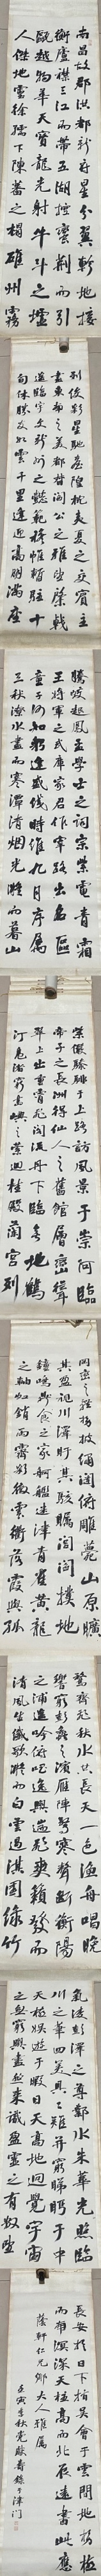 南昌故郡洪都新府星分翼軫地接
衡廬襟三江而帶五湖控蠻荊而引
甌越物華天寶龍光射牛斗之墟
人傑地靈徐孺下陳蕃之榻雄州霧
列俊彩星馳臺隍枕夷夏之交賓主
盡東南之美都督閻公之雅望棨戟
遙臨宇文新州之懿範襜帷暫駐十
旬休勝友如雲千里逢迎高朋滿座
騰蛟起鳳孟學士之詞宗紫電青霜
王將軍之武庫家君作宰路出名區
童子何知躬逢盛餞時維九月序屬
三秋潦水盡而寒潭清烟光凝而暮山
紫儼驂騑于上路訪風景于崇阿臨
帝子之長洲得仙人之舊館層巒聳
翠上出重霄飛閣流丹下臨無地鶴
汀鳧渚窮島嶼之縈迴桂殿蘭宮列
岡巒之體勢披繡闥俯雕甍山原曠
其盈視川澤盱其駭矚閭閻撲地
鐘鳴鼎食之家舸艦迷津青雀黃龍
之舳虹銷雨霽彩徹雲衢落霞與孤
鶩齊飛秋水共長天一色漁舟唱晚
響窮彭蠡之濱雁陣驚寒聲斷衡陽
之浦遙吟俯暢逸興遄飛爽籟發而
清風生纖歌凝而白雲遏淇園綠竹
氣凌彭澤之尊鄴水朱華光照臨
川之筆四美具二難并窮睇眄于中
天極娛遊于暇日天高地迥覺宇宙
之無窮興盡悲來識盈虛之有數望
長安於日下指吳會于雲間地勢極
而南溟深天柱高而北辰遠書此應
蔭軒仁兄鄉大人雅屬
季秋 錄于津門